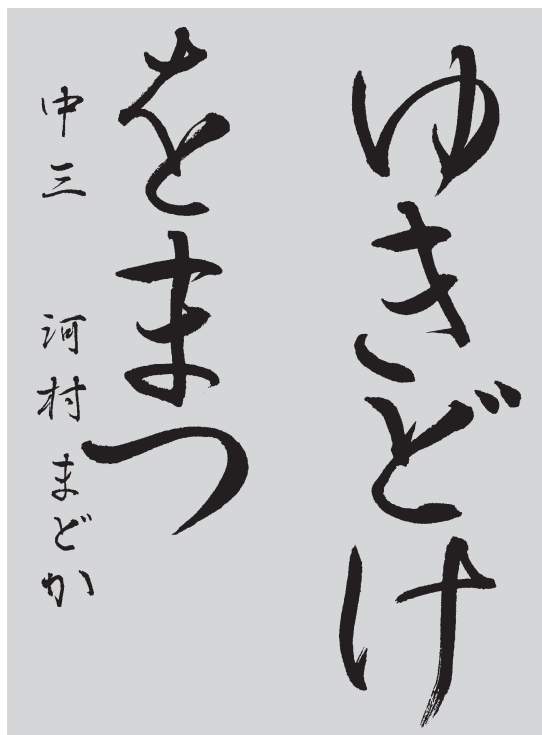 ゆきどけ
をまつ
中三 河村まどか